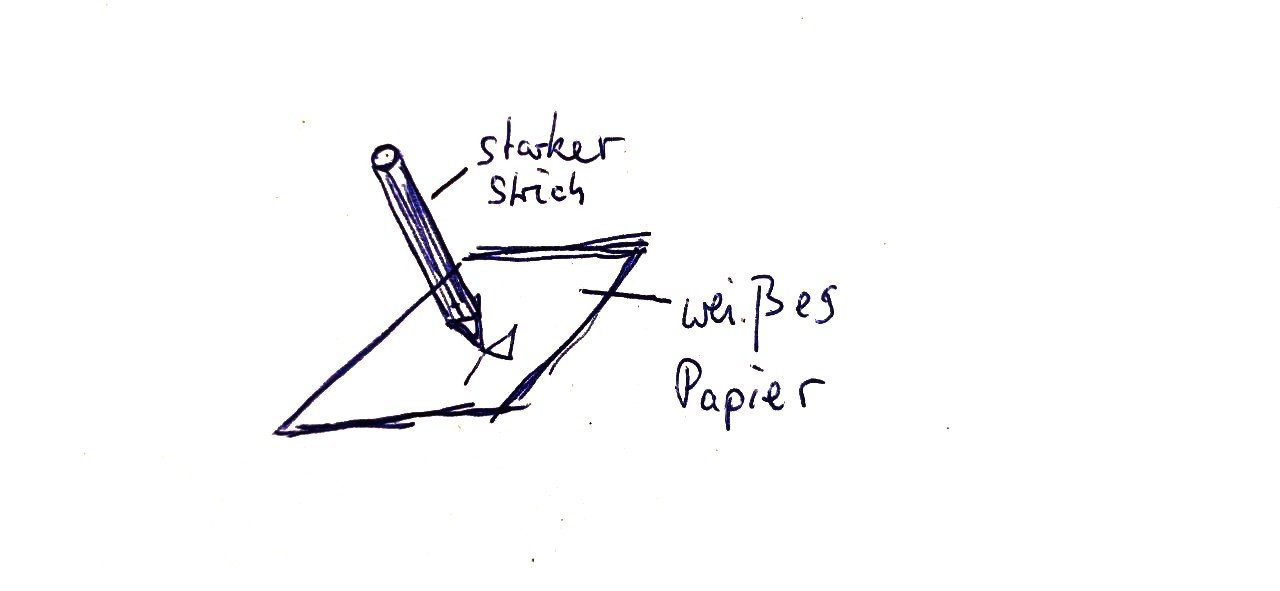 starker
Strich
weißes
Papier